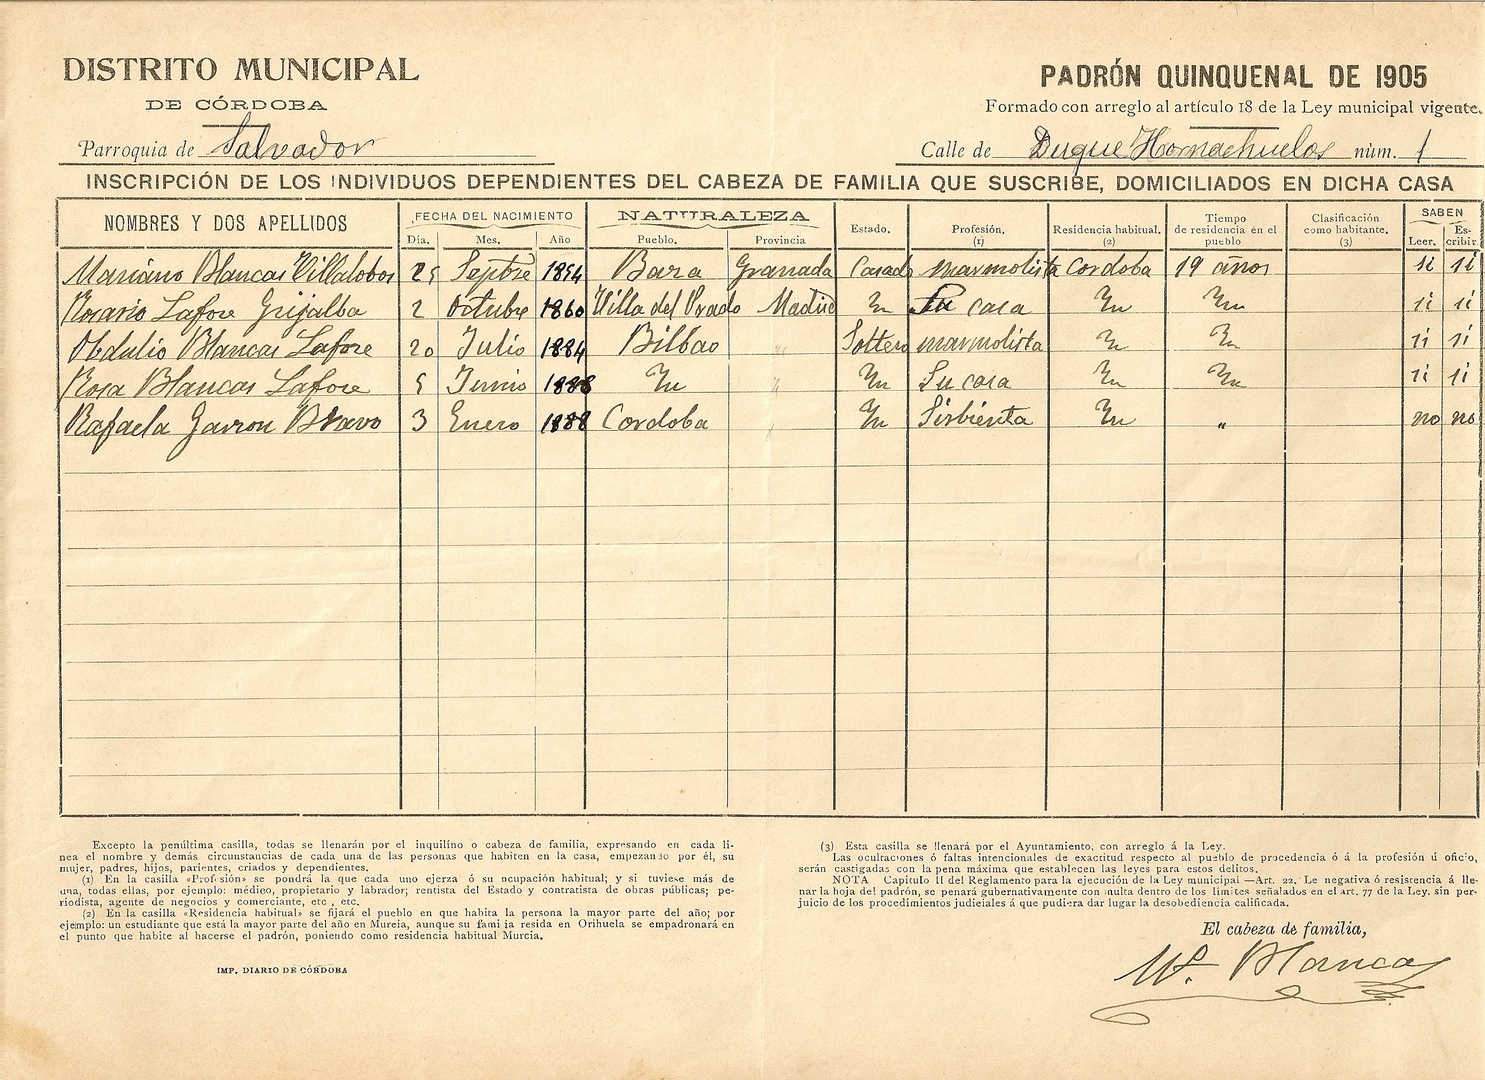 DISTRITO MUNICIPAL
DE CÓRDOBA
PADRÓN QUINQUENAL DE 1905
Formado con arreglo al artículo 18 de la Ley municipal vigente.
Parroquia de Salvador
Calle de Duque Hornachuelos núm. 1
INSCRIPCIÓN DE LOS INDIVIDUOS DEPENDIENTES DEL CABEZA DE FAMILIA QUE SUSCRIBE, DOMICILIADOS EN DICHA CASA
NOMBRES Y DOS APELLIDOS FECHA DEL NACIMIENTO Día. Mes. Año NATURALEZA Pueblo. Provincia Estado. Profesión. (1) Residencia habitual. (2) Tiempo de residencia en el pueblo Clasificación como habitante. (3) SABEN Leer. Escribir.
Mariano Blancas Villalobos 25 Septbre 1854 Baza Granada Casado marmolista Cordoba 19 años si si
Rosario Lafore Grijalba 2 Octubre 1860 Villa del Prado Madrid Su casa si si
Obdulio Blancas Lafore 20 Julio 1884 Bilbao " Soltero marmolista si si
Rosa Blancas Lafore 5 Junio 1888 " Su casa si si
Rafaela Gavron Bravo 3 Enero 1888 Cordoba Sirbienta " no no
Excepto la penúltima casilla, todas se llenarán por el inquilino o cabeza de familia, expresando en cada lí-
nea el nombre y demás circunstancias de cada una de las personas que habiten en la casa, empezando por él, su
mujer, padres, hijos, parientes, criados y dependientes.
(1) En la casilla «Profesión» se pondrá la que cada uno ejerza ó su ocupación habitual; y si tuviese más de
una, todas ellas, por ejemplo: médico, propietario y labrador; rentista del Estado y contratista de obras públicas; pe-
riodista, agente de negocios y comerciante, etc , etc.
(2) En la casilla «Residencia habitual» se fijará el pueblo en que habita la persona la mayor parte del año; por
ejemplo: un estudiante que está la mayor parte del año en Murcia, aunque su familia resida en Orihuela se empadronará en
el punto que habite al hacerse el padrón, poniendo como residencia habitual Murcia.
IMP. DIARIO DE CÓRDOBA
(3) Esta casilla se llenará por el Ayuntamiento, con arreglo á la Ley.
Las ocultaciones ó faltas intencionales de exactitud respecto al pueblo de procedencia ó á la profesión ú oficio,
serán castigadas con la pena máxima que establecen las leyes para estos delitos.
NOTA Capítulo II del Reglamento para la ejecución de la Ley municipal —Art. 22. Le negativa ó resistencia á lle-
nar la hoja del padrón, se penará gubernativamente con multa dentro de los límites señalados en el art. 77 de la Ley, sin per-
juicio de los procedimientos judiciales á que pudiera dar lugar la desobediencia calificada.
El cabeza de familia,
Mº. Blancas